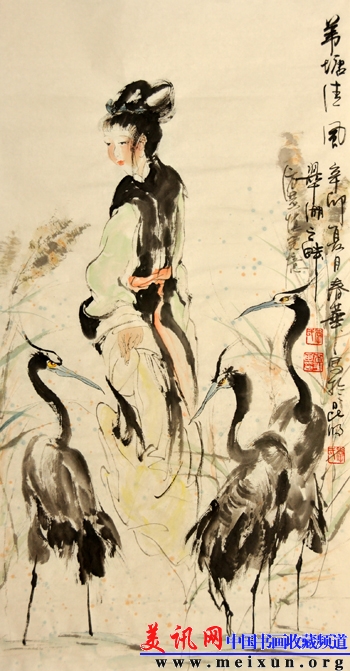 苇塘清风
辛卯夏月春華写於昆明
翠湖之畔
美讯网
中国书画收藏频道
www.meixun.org